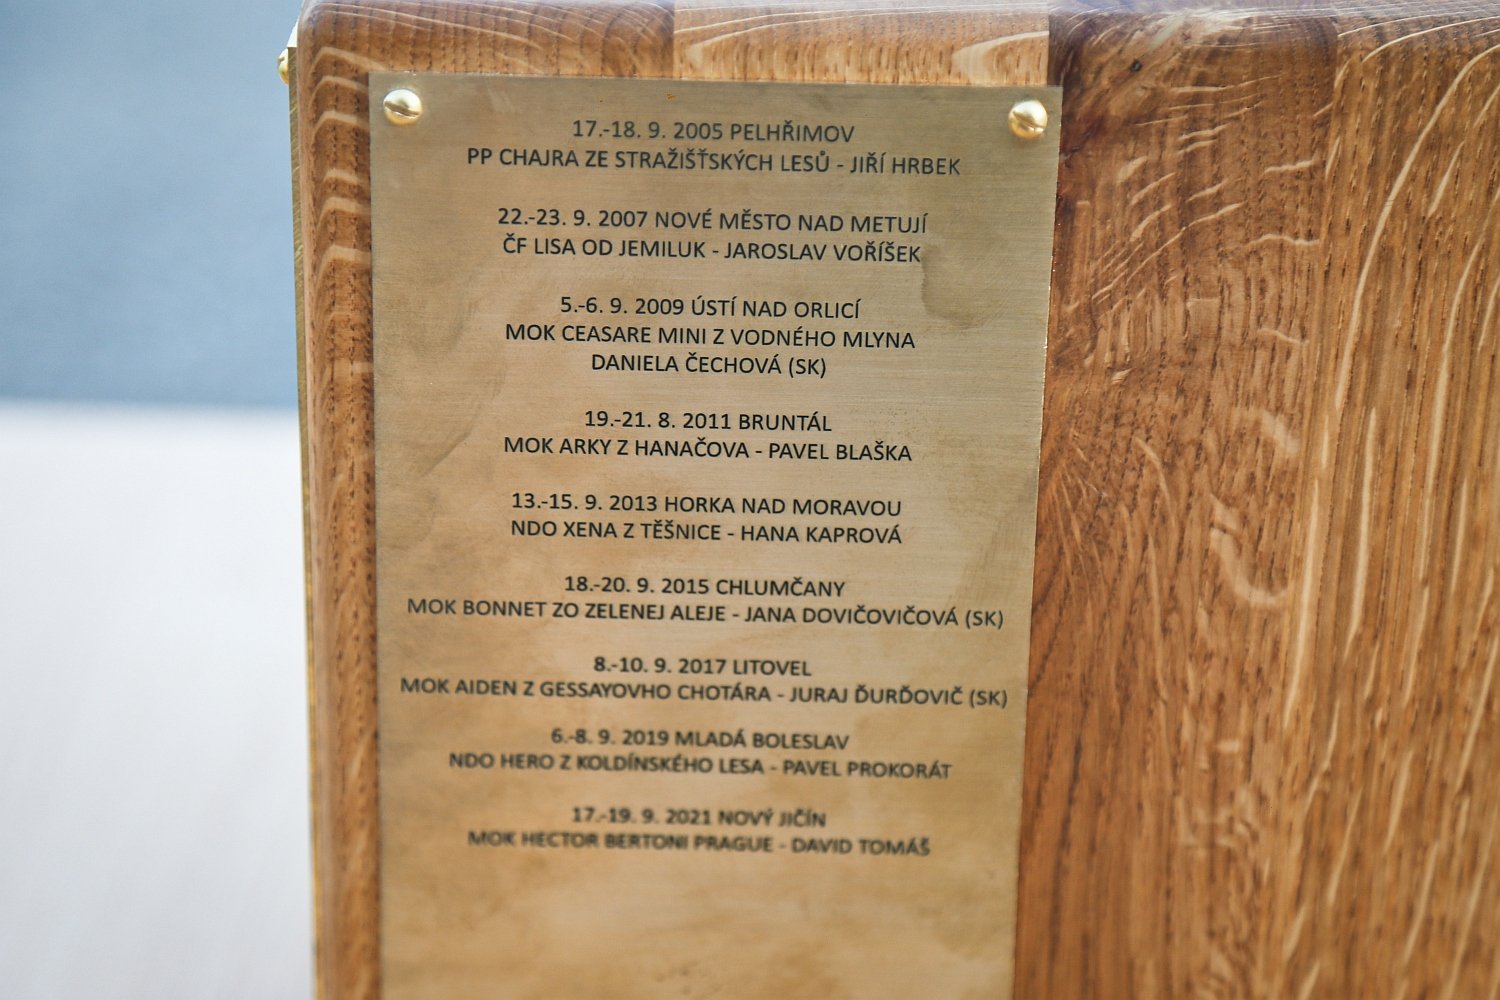 17.-18. 9. 2005 PELHŘIMOV
PP CHAJRA ZE STRAŽIŠŤSKÝCH LESŮ - JIŘÍ HRBEK
22.-23. 9. 2007 NOVÉ MĚSTO NAD METUJÍ
ČF LISA OD JEMILUK - JAROSLAV VOŘÍŠEK
5.-6. 9. 2009 ÚSTÍ NAD ORLICÍ
MOK CEASARE MINI Z VODNÉHO MLYNA
DANIELA ČECHOVÁ (SK)
19.-21. 8. 2011 BRUNTÁL
MOK ARKY Z HANAČOVA - PAVEL BLAŠKA
13.-15. 9. 2013 HORKA NAD MORAVOU
NDO XENA Z TĚŠNICE - HANA KAPROVÁ
18.-20. 9. 2015 CHLUMČANY
MOK BONNET ZO ZELENEJ ALEJE - JANA DOVIČOVIČOVÁ (SK)
8.-10. 9. 2017 LITOVEL
MOK AIDEN Z GESSAYOVHO CHOTÁRA - JURAJ ĎURĎOVIČ (SK)
6.-8. 9. 2019 MLADÁ BOLESLAV
NDO HERO Z KOLDÍNSKÉHO LESA - PAVEL PROKORÁT
17.-19. 9. 2021 NOVÝ JIČÍN
MOK HECTOR BERTONI PRAGUE - DAVID TOMÁŠ